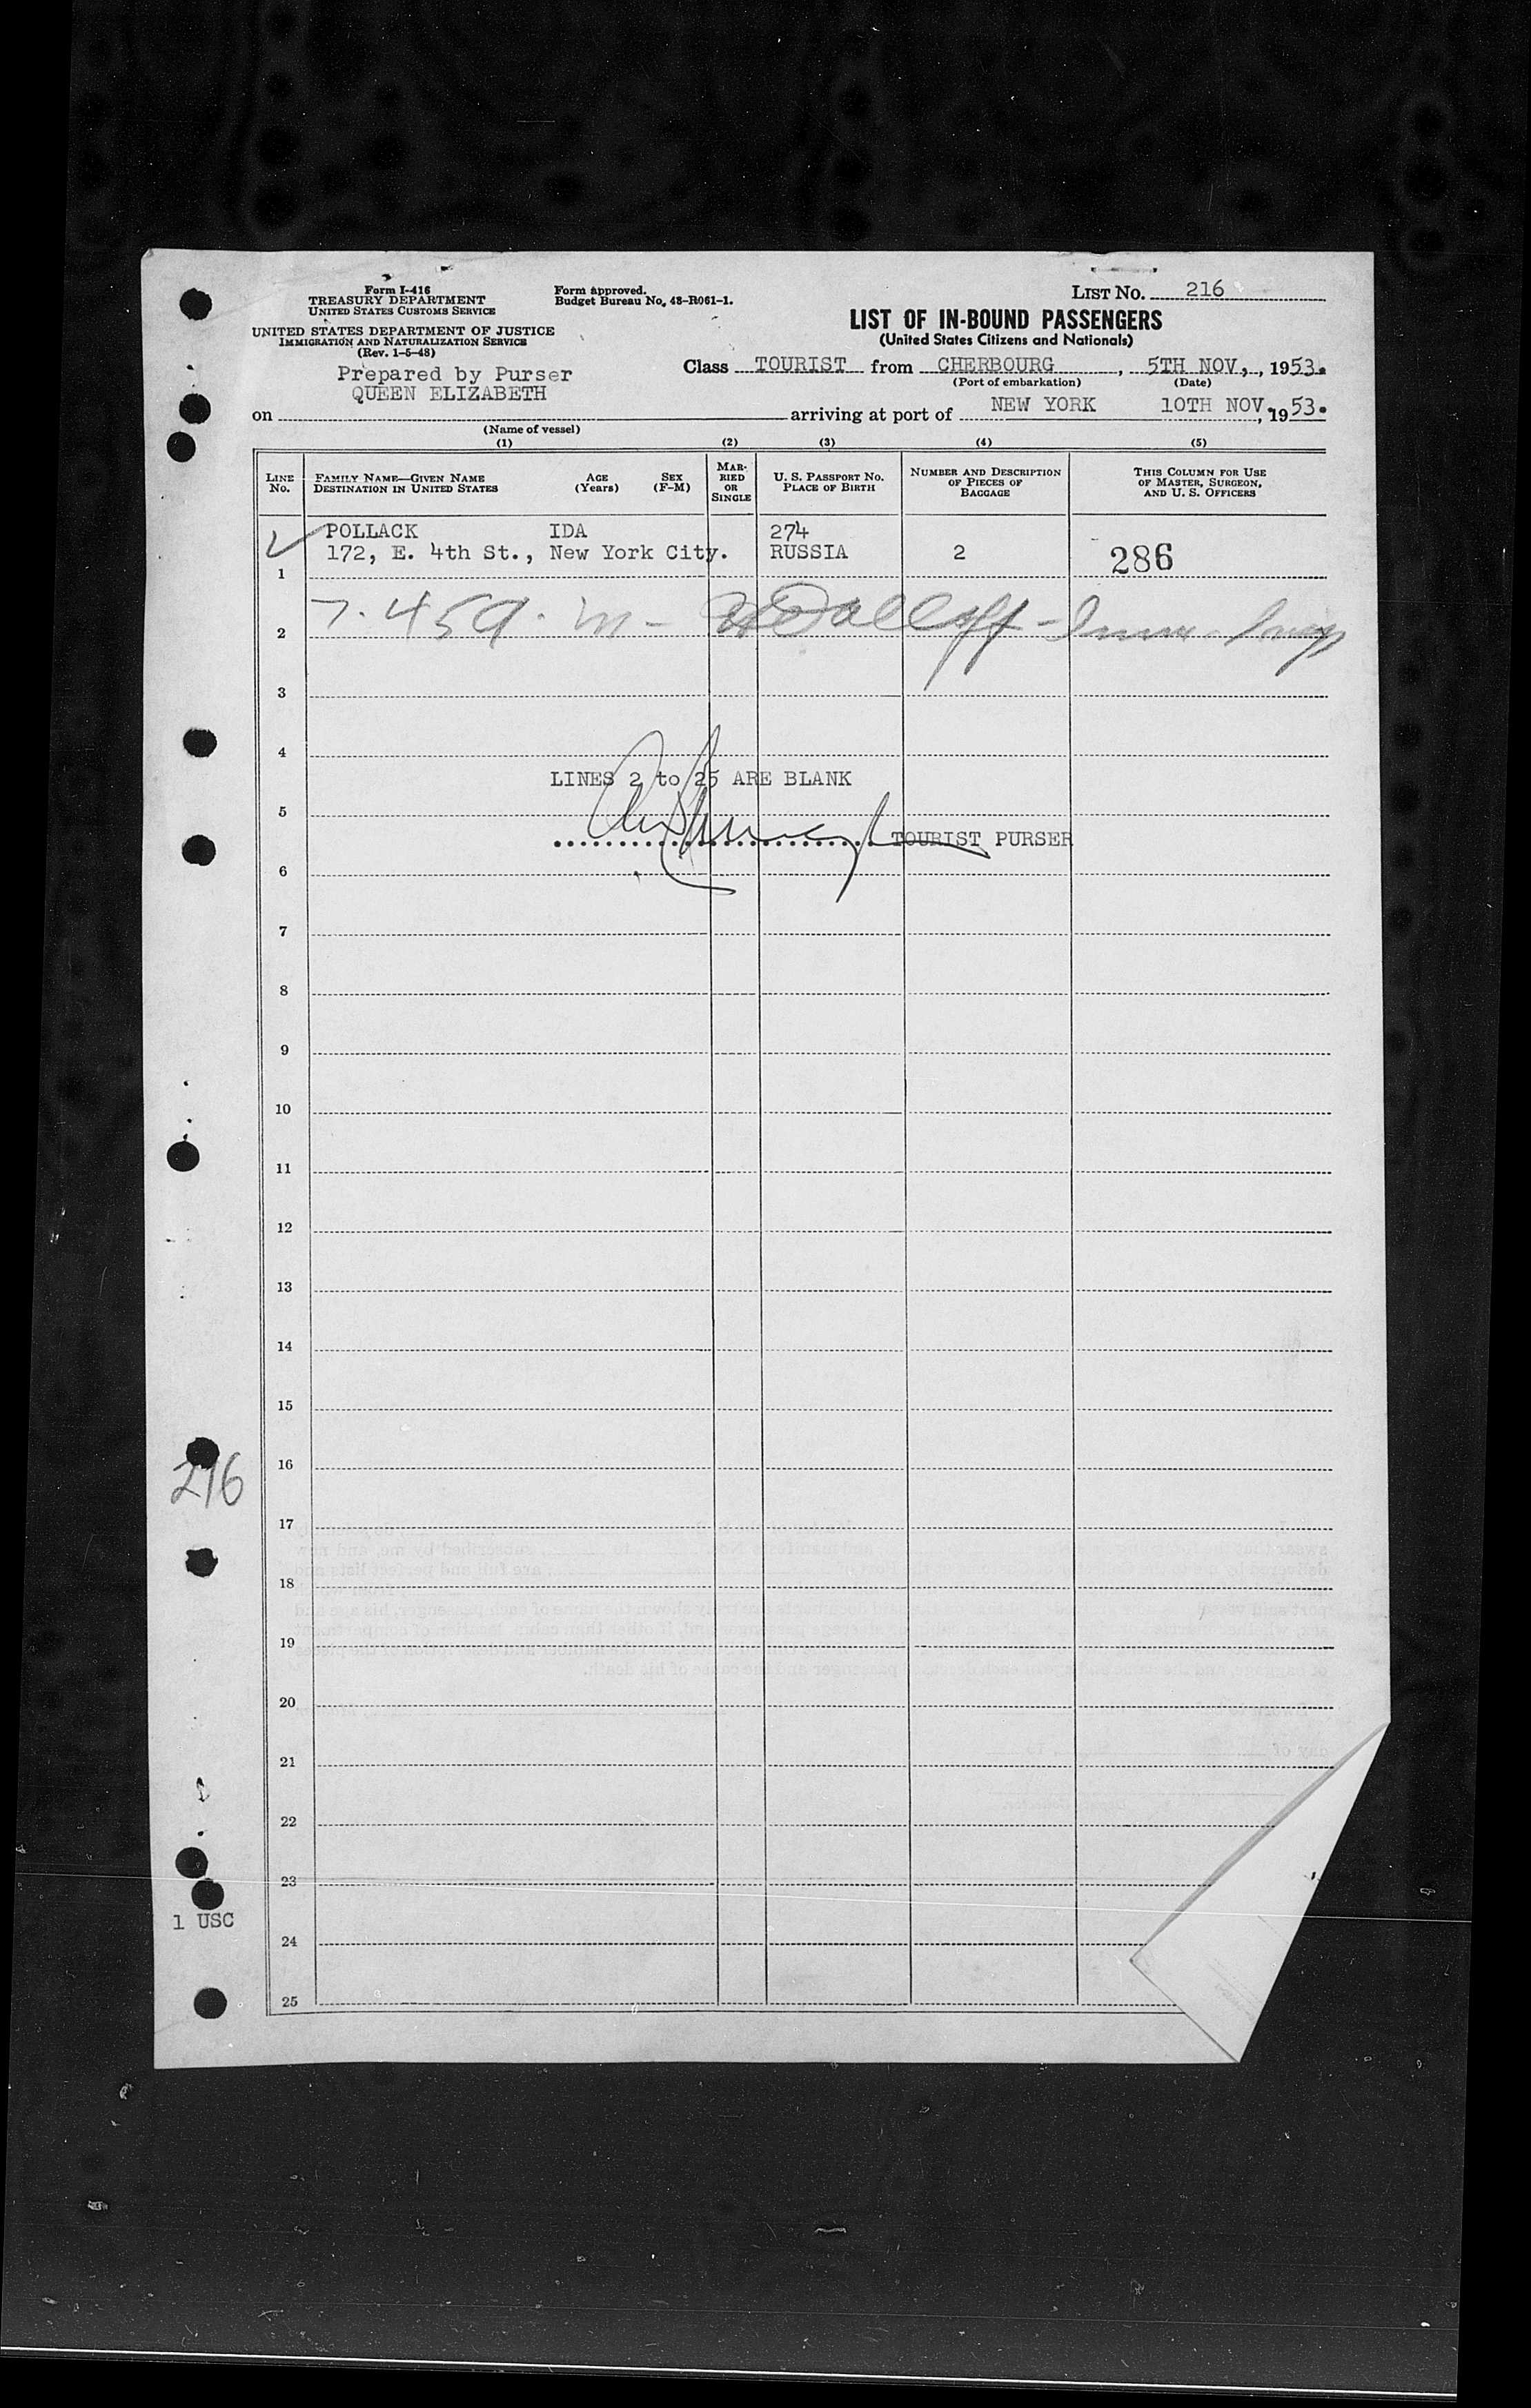 Form I-416
TREASURY DEPARTMENT
UNITED STATES CUSTOMS SERVICE
UNITED STATES DEPARTMENT OF JUSTICE
IMMIGRATION AND NATURALIZATION SERVICE
(Rev. 1-5-48)
Form approved.
Budget Bureau No. 48-R061-1.
LIST NO. 216
LIST OF IN-BOUND PASSENGERS
(United States Citizens and Nationals)
Class TOURIST from CHERBOURG, 5TH NOV., 1953.
(Port of embarkation) (Date)
Prepared by Purser
QUEEN ELIZABETH
on arriving at port of NEW YORK 10TH NOV, 1953.
(Name of vessel)
(1) (2) (3) (4) (5)
LINE No. FAMILY NAME—GIVEN NAME DESTINATION IN UNITED STATES AGE (Years) SEX (F-M) MARRIED OR SINGLE U. S. PASSPORT NO. PLACE OF BIRTH NUMBER AND DESCRIPTION OF PIECES OF BAGGAGE THIS COLUMN FOR USE OF MASTER, SURGEON, AND U. S. OFFICERS
POLLACK IDA 274
172, E. 4th St., New York City. RUSSIA 2 286
1
7. 459. m -
2
3
4
LINES 2 to 25 ARE BLANK
5
TOURIST PURSER
6
7
8
9
10
11
12
13
14
15
16
216
17
18
19
20
21
22
23
1 USC
24
25